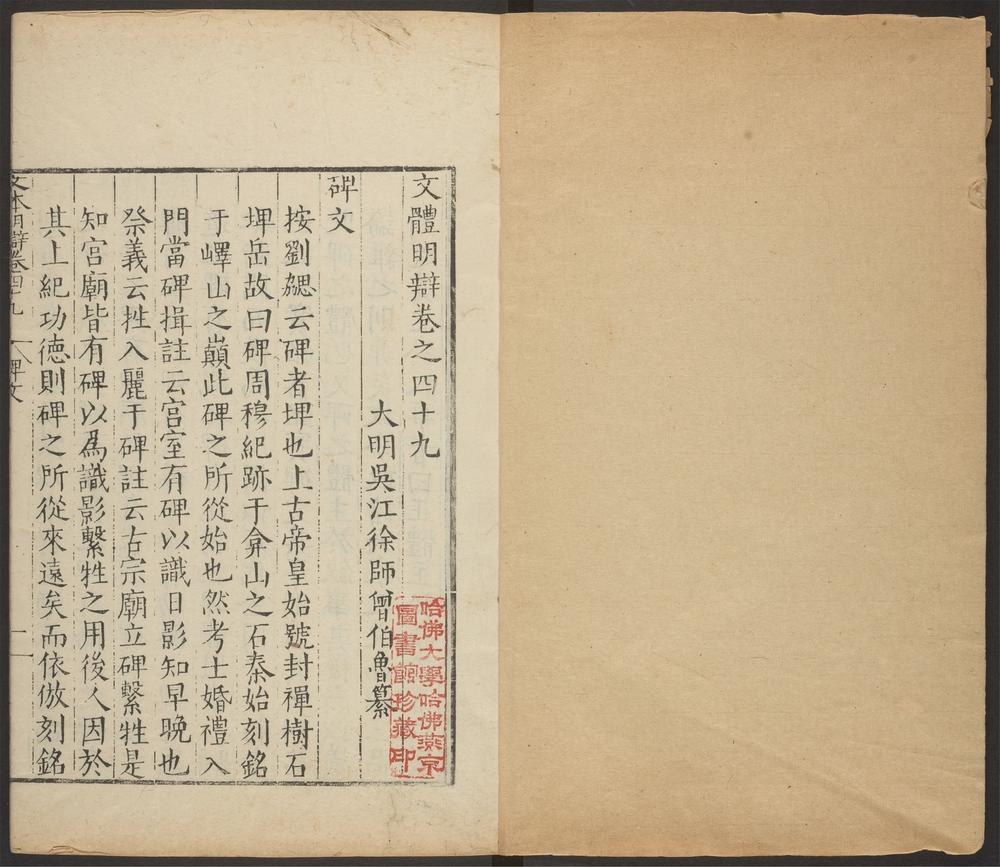 文體明辯卷之四十九
大明吳江徐師曾伯魯纂
碑文
按劉勰云碑者埤也上古帝皇始號封禪樹石
埤岳故曰碑周穆紀跡于弇山之石秦始刻銘
于嶧山之巔此碑之所從始也然考士婚禮入
門當碑揖註云宮室有碑以識日影知早晚也
祭義云牲入麗于碑註云古宗廟立碑繫牲是
知宮廟皆有碑以爲識影繫牲之用後人因於
其上紀功德則碑之所從來遠矣而依倣刻銘
文体明辯卷四十九 碑文 一
哈佛大學哈佛燕京
圖書館珍藏印